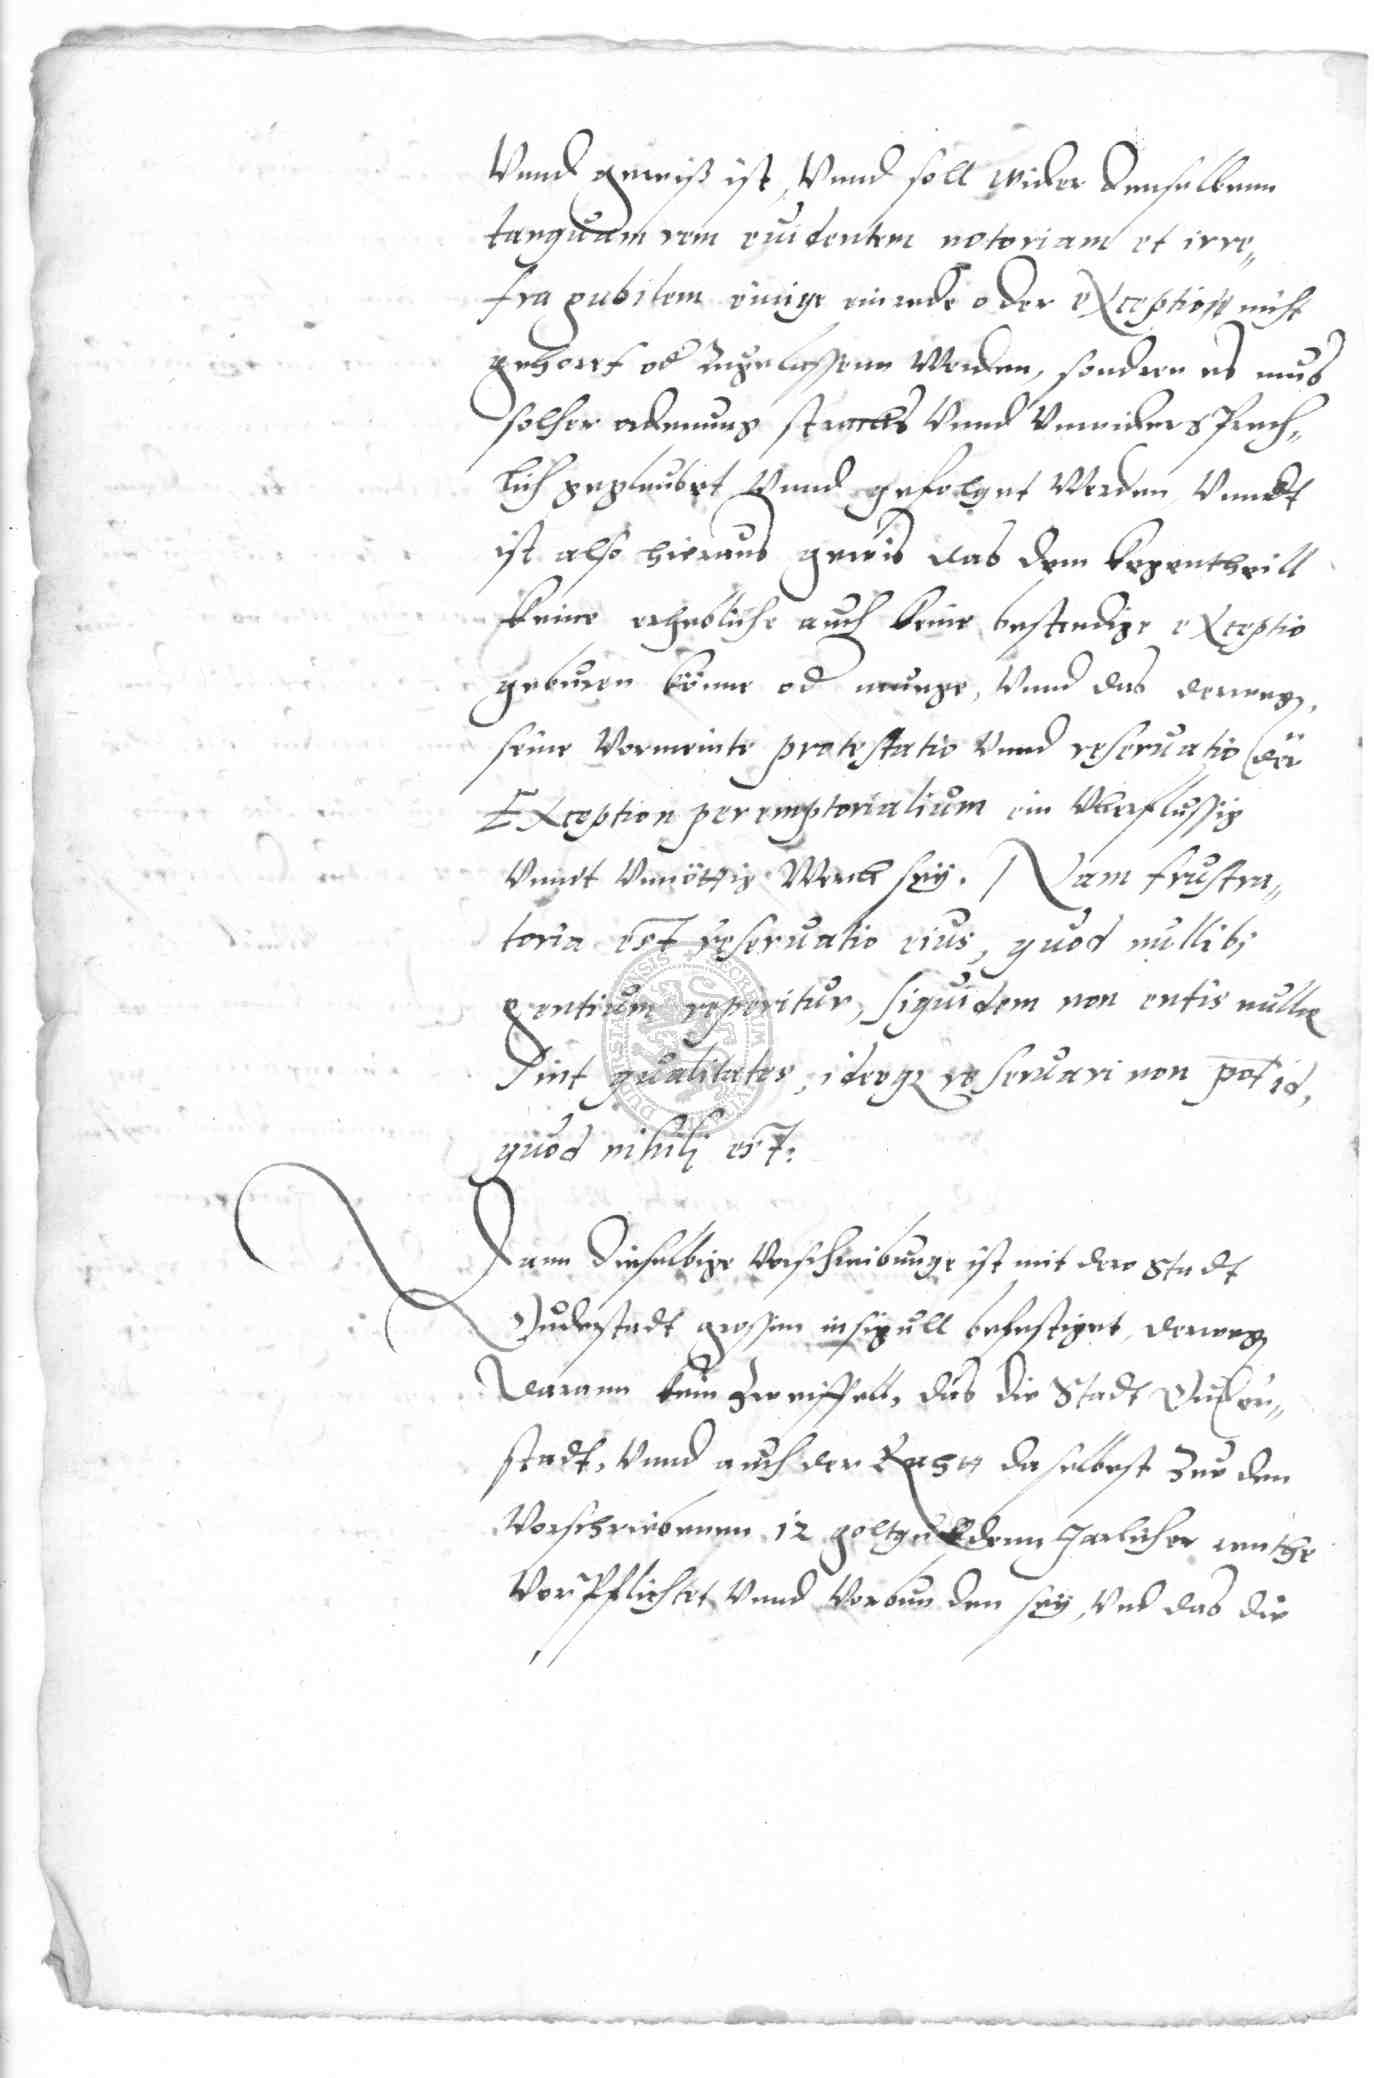 Vnnd gewiß ist, Vnnd soll wider denselbenn
tanquam rem euidentem notoriam et irre„
fragubilem einige einrede oder exception nicht
gehoret od Zugelassenn Werden, sondern es mus
solcher ordenung stracks Vnnd Vnwidersprech„
lich geglaubet Vnnd gefolget Werden, Vnndt
ist also hieraus gewis das dem kegentheill
keine erhebliche auch keine bestendige exceptio
geburen könne od muege, Vnnd das derweg,
seine Vormeinte protestatio Vnnd reseruatio der
Exception peremptorialium ein Vberflussig
Vnndt Vnnöttig Werck sey. Nam frustra„
toria est reseruatio eius, quod nullibi
gentium reperitur, siquidem non entis nullæ
sint qualitates, ideoq; reseruari non pot id,
quod nihili est.
Dann dieselbige Vorschreibunge ist mit der Stadt
Duderstadt grossem insigull befestiget, derweg
daran kein Zweiffell, das die Stadt Duder„
stadt, Vnnd auch der Rath daselbest Zue den
Vorschriebenen 12 goltguldenn Jarlicher renthe
Vorpflichtet Vnnd Vorbunden sey, Vnd das die
DUDERSTADENSIS SECRETUM CIVITATIS